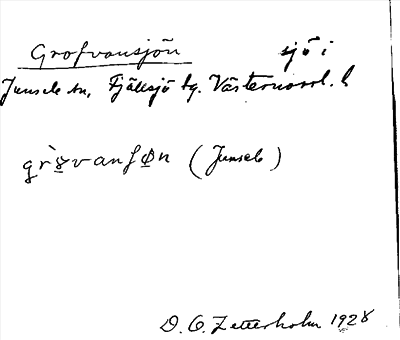 Grofvansjön sjö i
Junsele sn, Fjällsjö tg. Västernorrl. l
grò̤vanʃø̤n (Junsele)
D. O. Zetterholm 1928